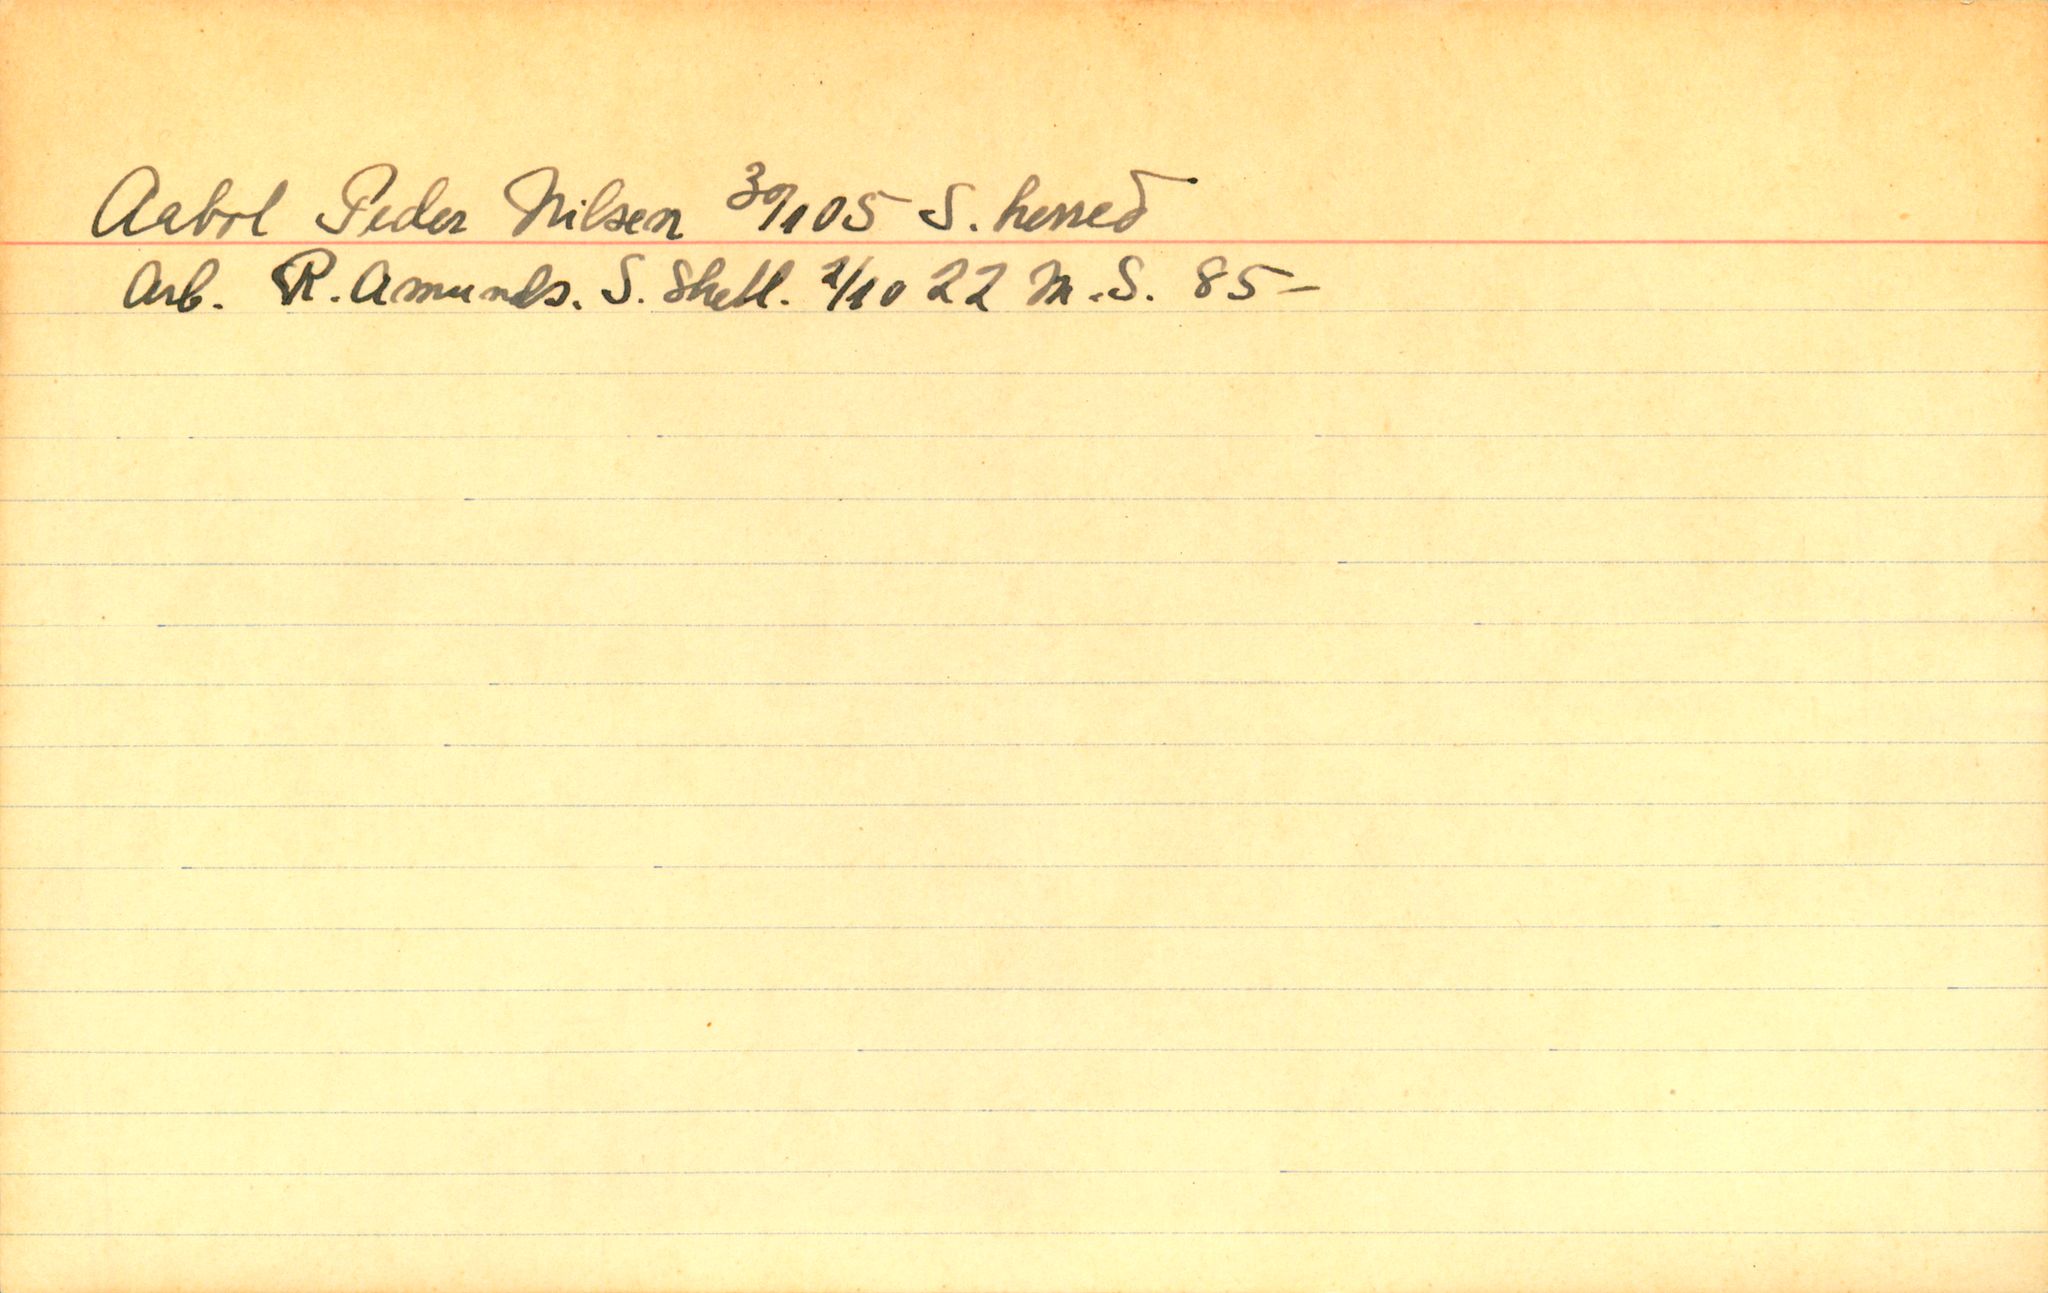 Aabol Peder Nilsen 30/1 05 S. herred
Arb. R. Amunds. S. Shetl. 2/10 22 M.S. 85-